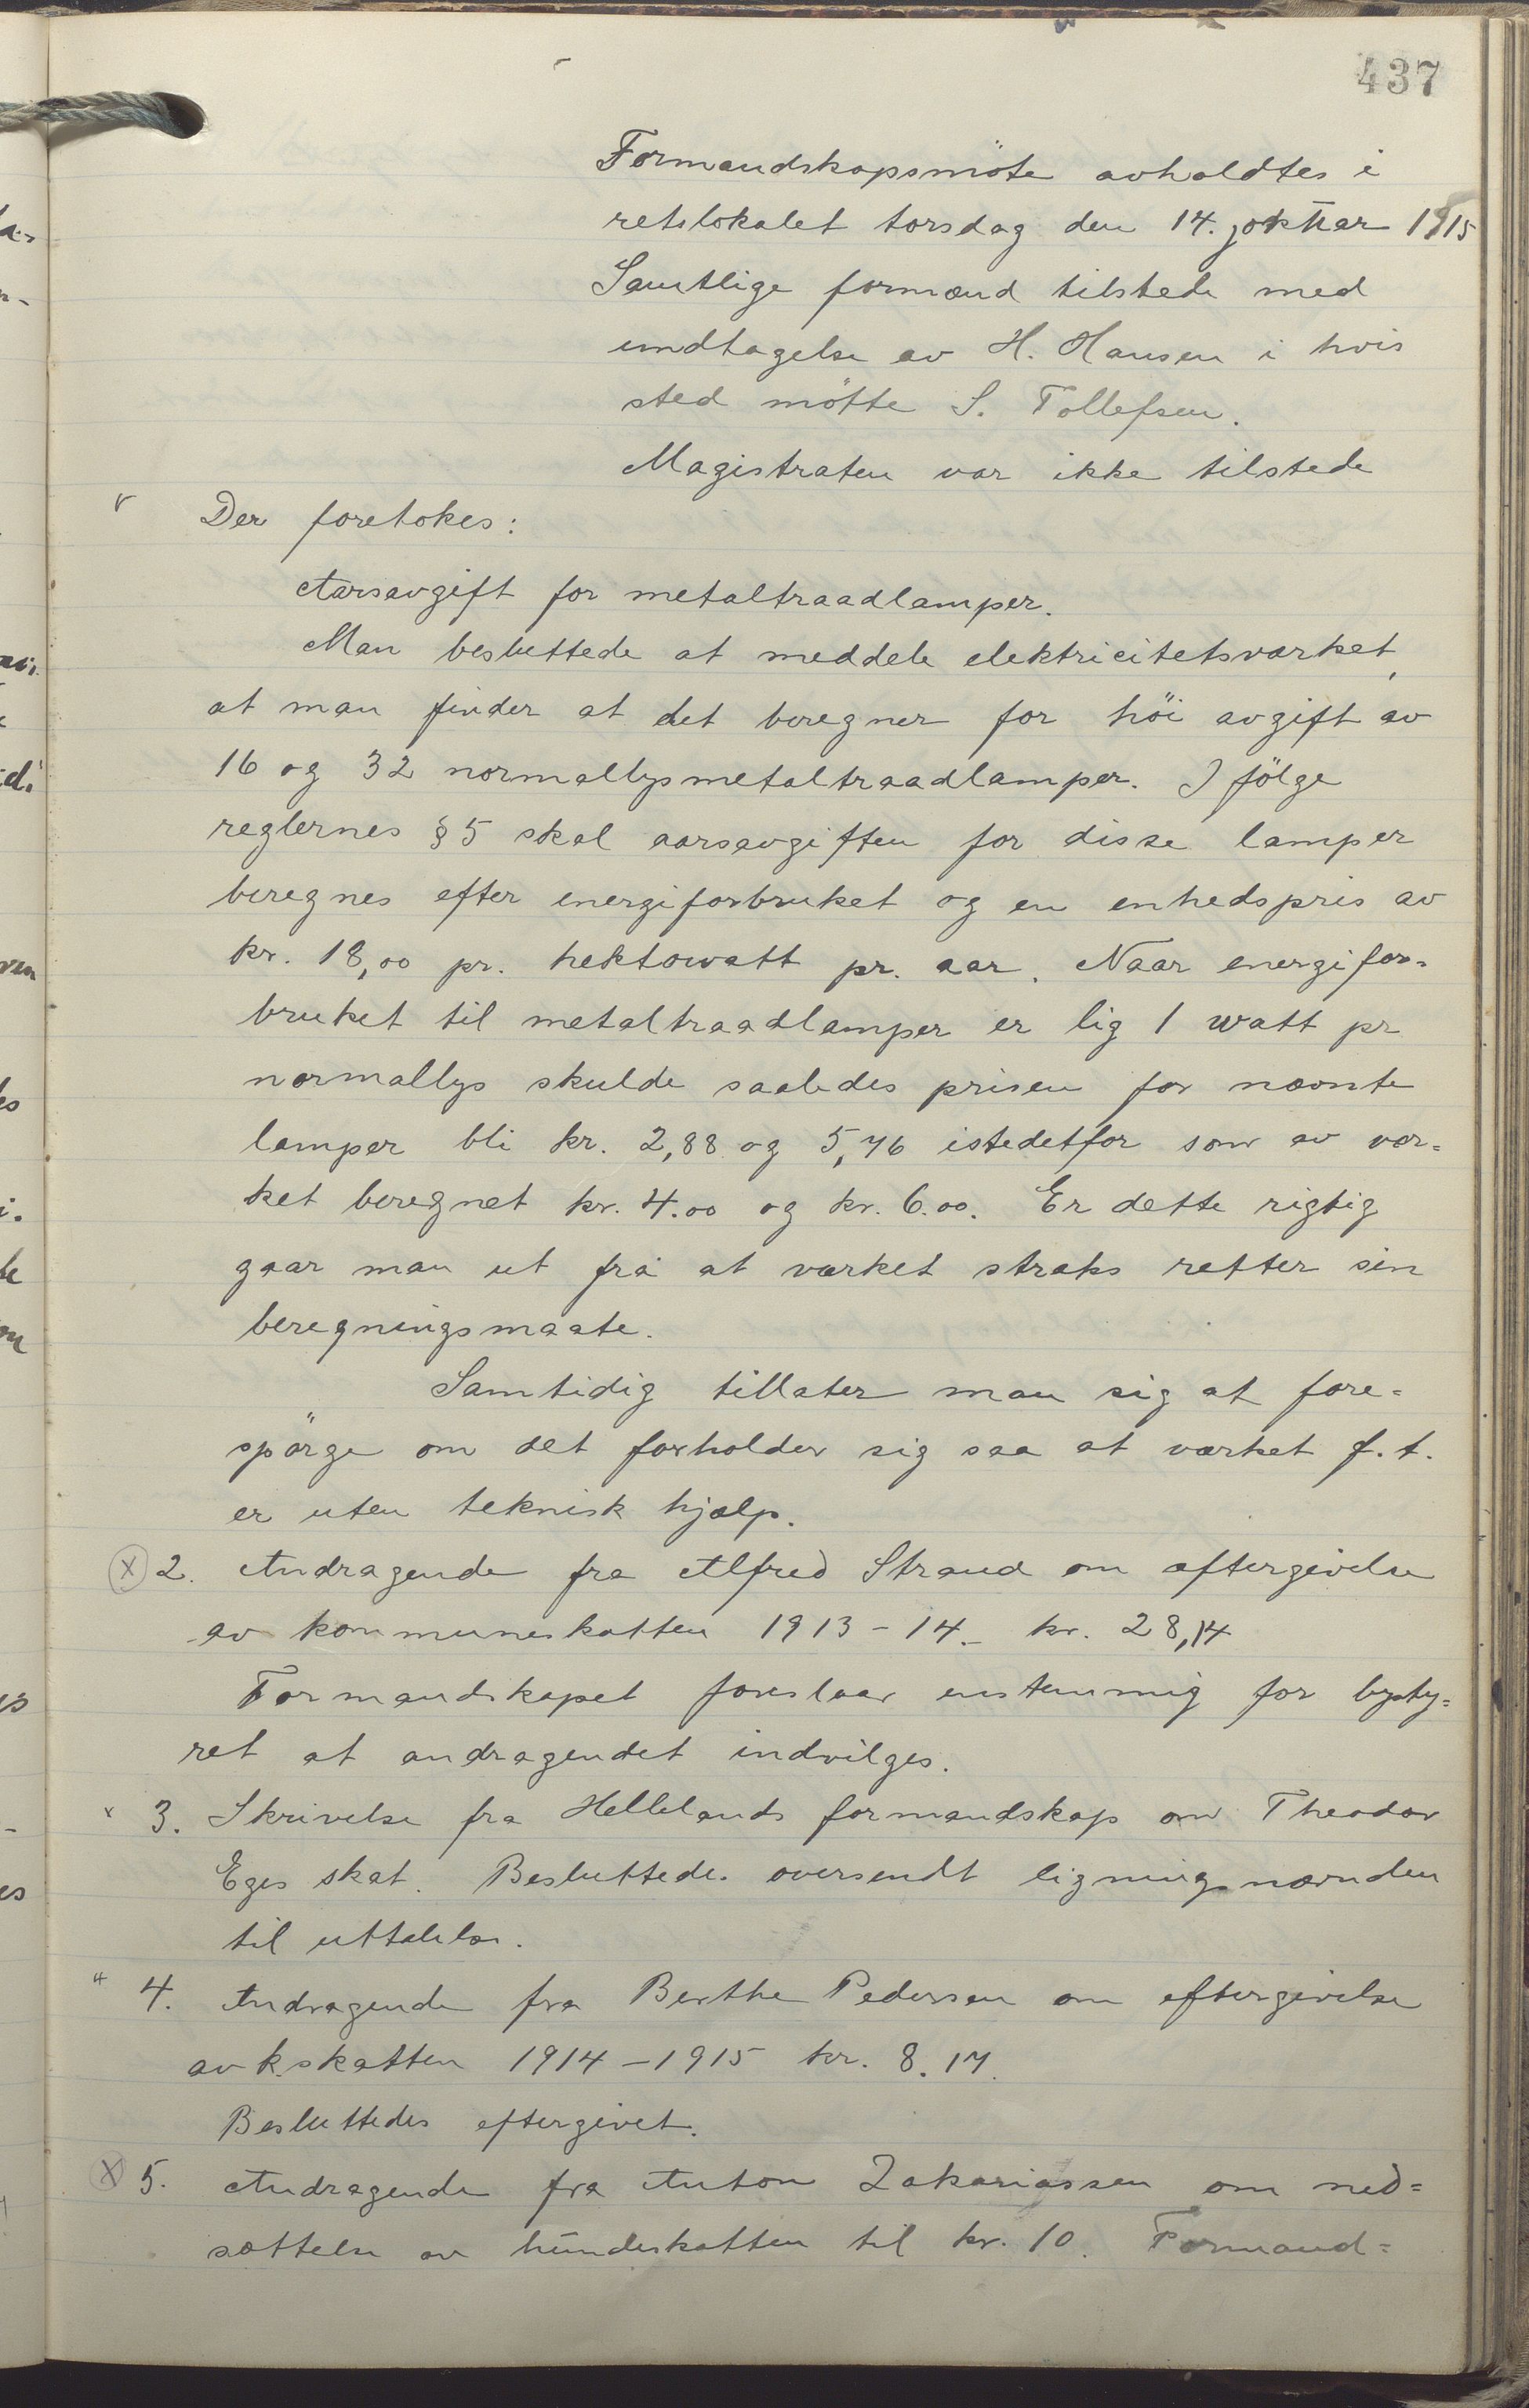 437
Formandskapsmöte avholdtes i
retslokalet torsdag den 14. januar 1915
Samtlige formænd tilstede med
undtagelse av H. Hansen i hvis
sted mötte S. Tollefsen.
Magistraten var ikke tilstede
Der foretokes:
Aarsavgift for metaltraadlamper.
Man besluttede at meddele elektricitetsværket,
at man finder at det beregner for höi avgift av
16 og 32 normallysmetaltraadlamper. I fölge
reglernes § 5 skal aarsavgiften for disse lamper
beregnes efter energiforbruket og en enhedspris av
kr. 18,00 pr. hektowatt pr. aar. Naar energifor=
bruket til metaltraadlamper er lig 1 watt pr
normallys skulde saaledes prisen for nævnte
lamper bli kr. 2,88 og 5,76 istedetfor som av vær=
ket beregnet kr. 4.00 og kr. 6.00. Er dette rigtig
gaar man ut fra at værket straks retter sin
beregningsmaate.
Samtidig tillater man sig at fore=
spörge om det forholder sig saa at værket f.t.
er uten teknisk hjælp.
x 2. Andragende fra Alfred Strand om eftergivelse
av kommuneskatten 1913-14 kr. 28,14
Formandskapet foreslaar enstemmig for bysty=
ret at andragendet indvilges.
x 3. Skrivelse fra Hellelands formandskap om Theodor
Eges skat. Besluttedes oversendt ligningsnævnden
til uttalelse.
4. Andragende fra Berthe Pedersen om eftergivelse
av k.skatten 1914-1915 kr. 8.17.
Besluttedes eftergivet.
x 5. Andragende fra Anton Zakariassen om ned=
sættelse av hundeskatten til kr. 10. Formand=